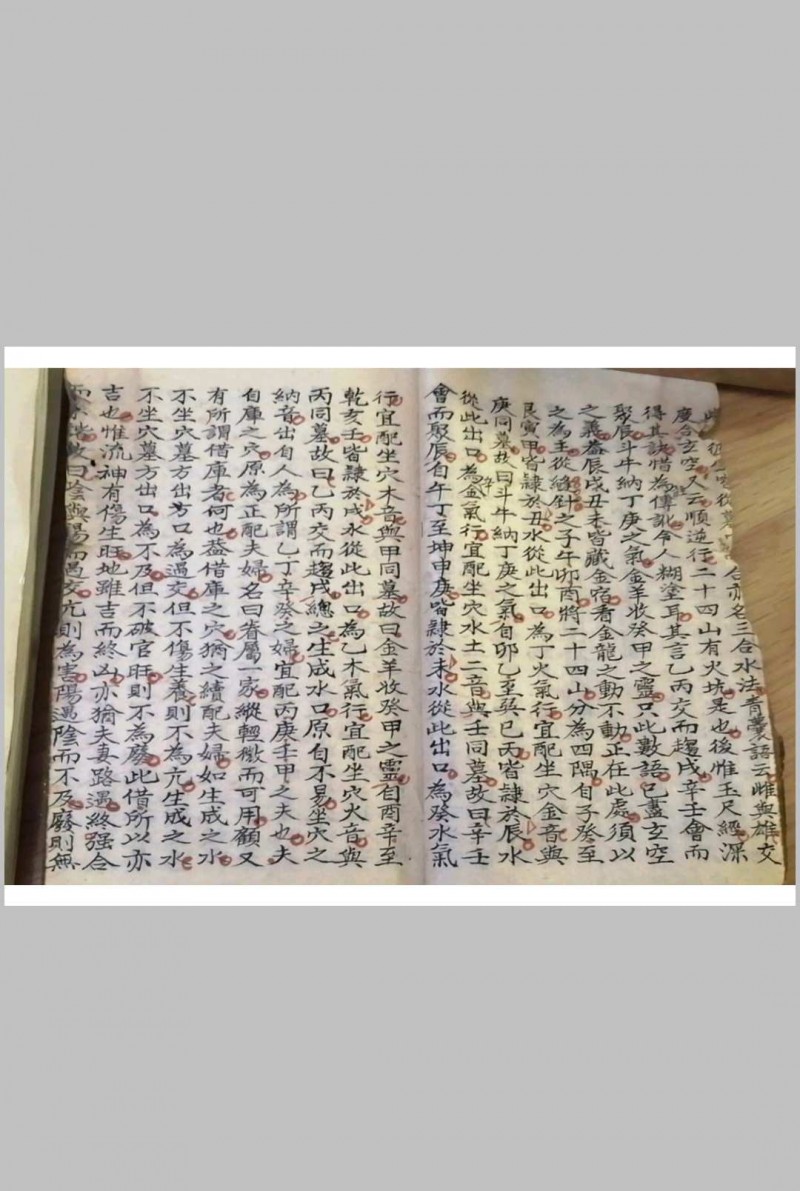 合亦名三合水法青囊語云雌與雄交
度合玄空又云順逆行二十四山有火坑是也後惟玉尺經深
得其訣惜為傳訛令人糊塗耳其言乙丙交而趨戌辛壬會而
聚辰斗牛納丁庚之氣金羊收癸甲之靈只此數語已盡玄空
之義蓋辰戌丑未皆藏金宿看金龍之動不動正在此處須以
之為主從縫針之子午卯酉將二十四山分為四隅自子癸至
艮寅甲皆隸於丑水從此出口為丁火氣行宜配坐穴金音與
庚同墓故曰斗牛納丁庚之氣自卯乙至巽巳丙皆隸於辰水
從此出口為金氣行宜配坐穴水土二音與壬同墓故曰辛壬
會而聚辰自午丁至坤申庚皆隸於未水從此出口為癸水氣
行宜配坐穴木音與甲同墓故曰金羊收癸甲之靈自酉辛至
乾亥壬皆隸於戌水從此出口為乙木氣行宜配坐穴火音與
丙同墓故曰乙丙交而趨戌總之生成水口原自不易坐穴之
納音出自人為所謂乙丁辛癸之婦宜配丙庚壬甲之夫也夫
自庫之穴原為正配夫婦名曰眷屬一家縱輕微而可用顧又
有所謂借庫者何也蓋借庫之穴猶之續配夫婦如生成之水
不坐穴墓方出口為過交但不傷生養則不為亢生成之水
不坐穴墓方出口為不及但不破官旺則不為廢此借所以亦
吉也惟流神有傷生旺地雖吉而終凶亦猶夫妻路遇終强合
故曰陰與陽而過交亢則為害陽遇陰而不及廢則無